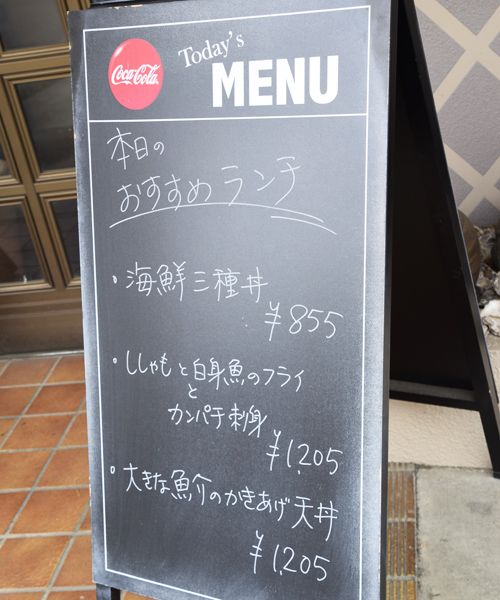 Coca-Cola
Today's
MENU
本日の
おすすめランチ
・海鮮三種丼
¥855
・ししゃもと白身魚のフライ
と
カンパチ刺身
¥1,205
・大きな魚介のかきあげ天丼
¥1,205